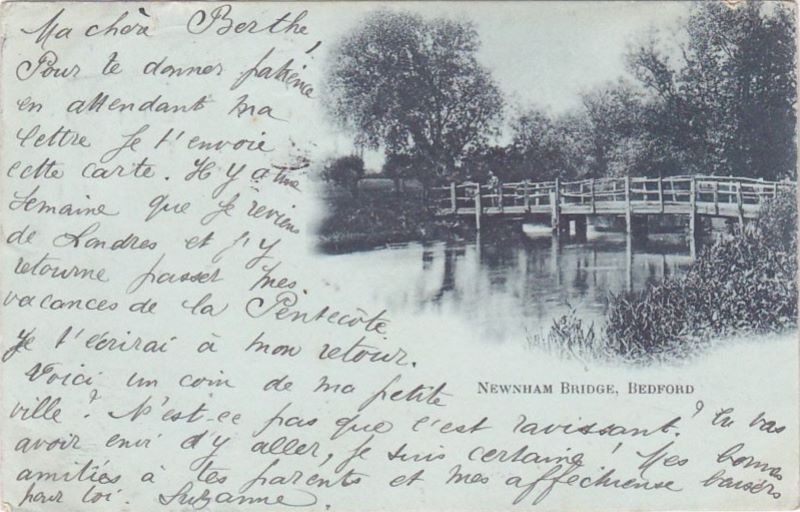 Ma chère Berthe,
Pour te donner patience
en attendant ma
lettre je t'envoie
cette carte. Il y a une
semaine que je reviens
de Londres et j'y
retourne passer mes
vacances de la Pentecôte
Je t'écrirai à mon retour.
Voici un coin de ma petite
NEWNHAM BRIDGE, BEDFORD
ville? N'est-ce pas que c'est ravissant? Tu vas
avoir envi d'y aller, je suis certaine! Mes bonnes
amitiés à tes parents et mes affectueuse baisers
pour toi. Suzanne.